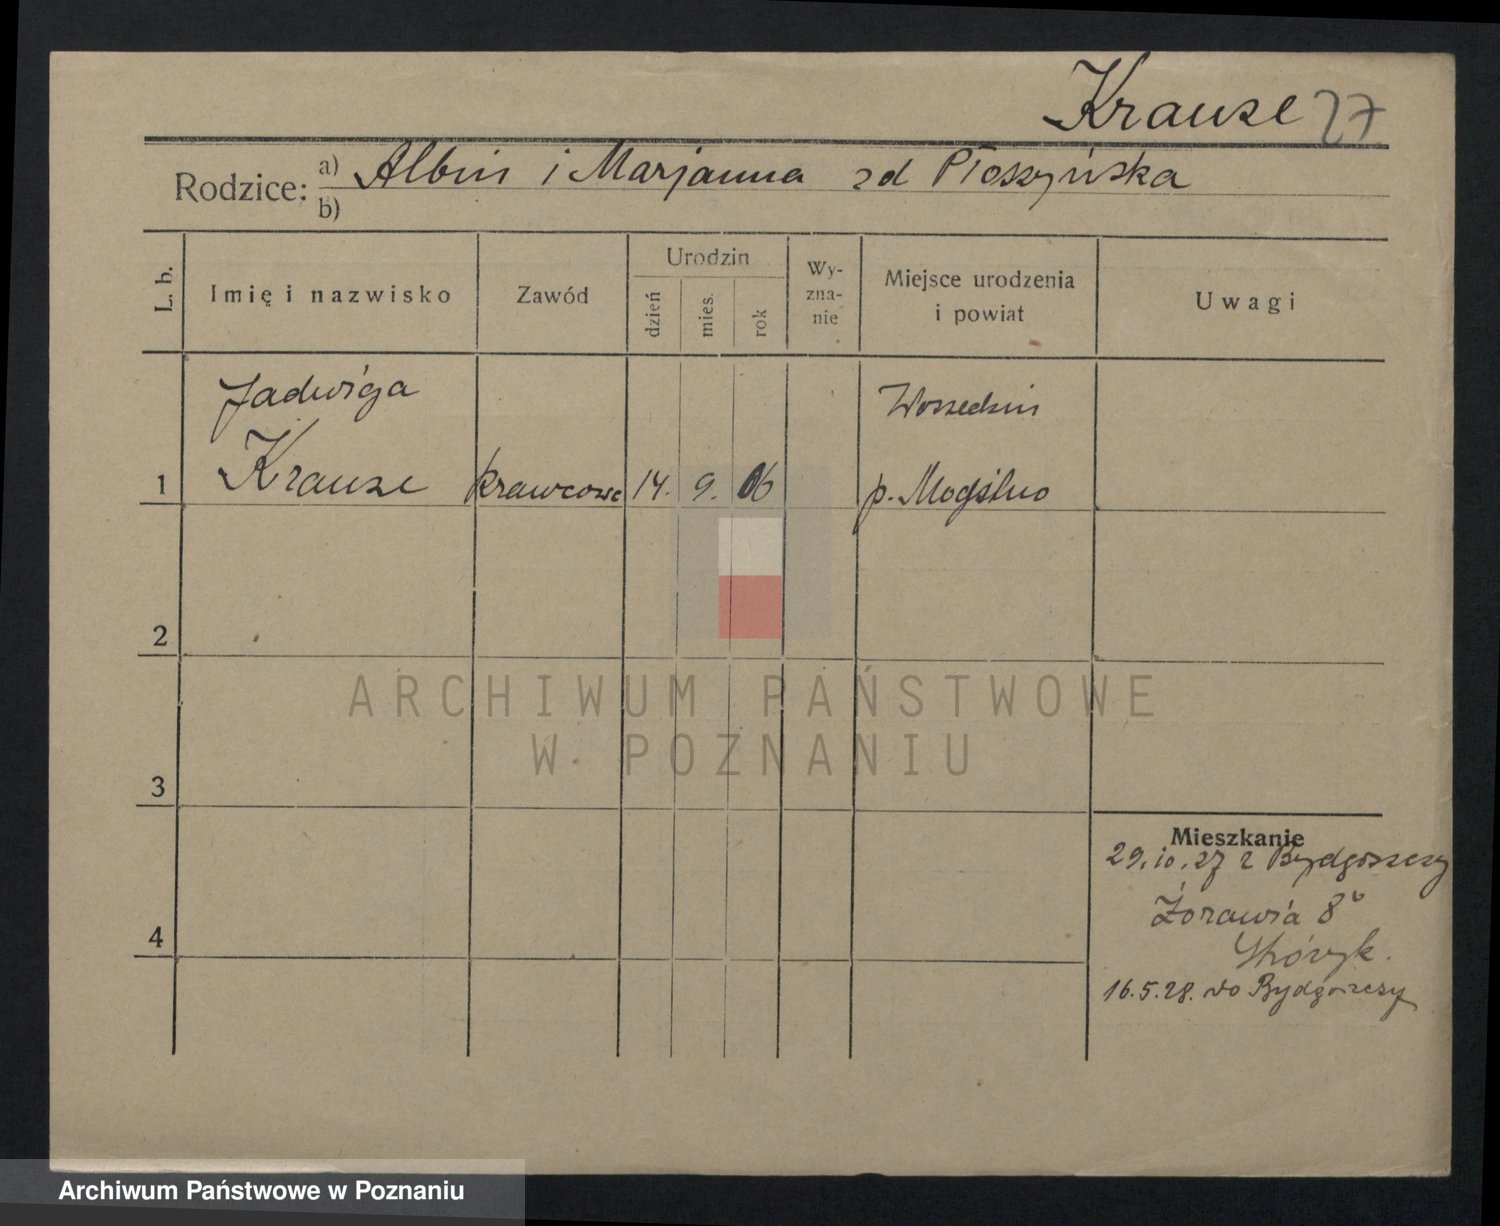 Krause 27
Rodzice: a) Albin i Marjanna zd Płoszyńska
b)
L. b. Imię i nazwisko Zawód Urodzin dzień mies. rok Wy-zna-nie Miejsce urodzenia i powiat Uwagi
Jadwiga
1 Krause krawcowa 14. 9. 06 p. Mogilno
2
3
4
Mieszkanie
29.10.27 z Bydgoszczy
Żórawia 8
16.5.28. do Bydgoszczy
ARCHIWUM PAŃSTWOWE
W POZNANIU
Archiwum Państwowe w Poznaniu